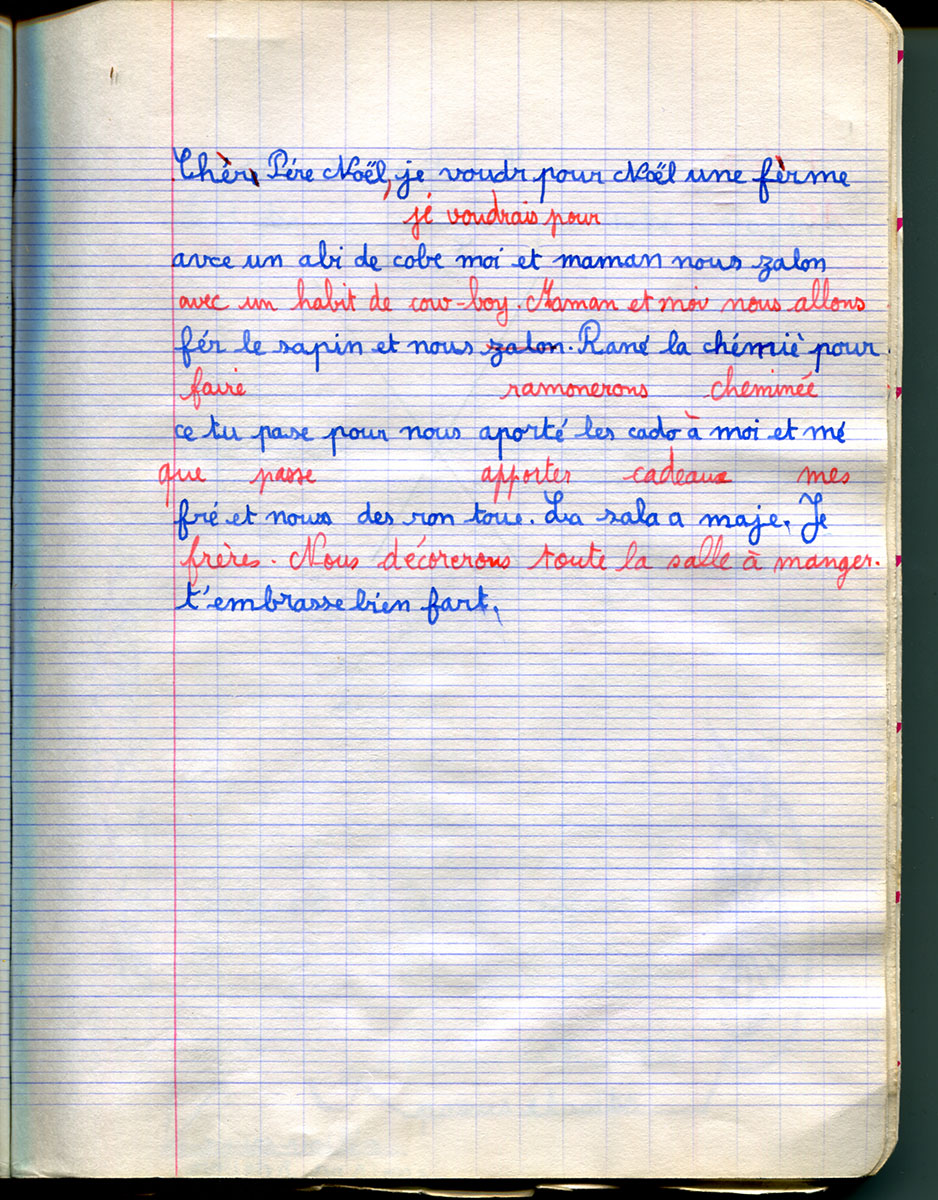 Chèr Père Noël, je voudr pour Noël une fèrme
jé voudrais pour
avce un abi de cobe moi et maman nous zalon
avec un habit de cow-boy. Maman et moi nous allons
fér le sapin et nous zalon. Rané la chémiè pour
faire ramonerons cheminée
ce tu pase pour nous aporté les cado à moi et mé
que passe apporter cadeaux mes
fré et nous des ron toue. La sala a maje, Je
frères. Nous décorerons toute la salle à manger.
t'embrasse bien fort,